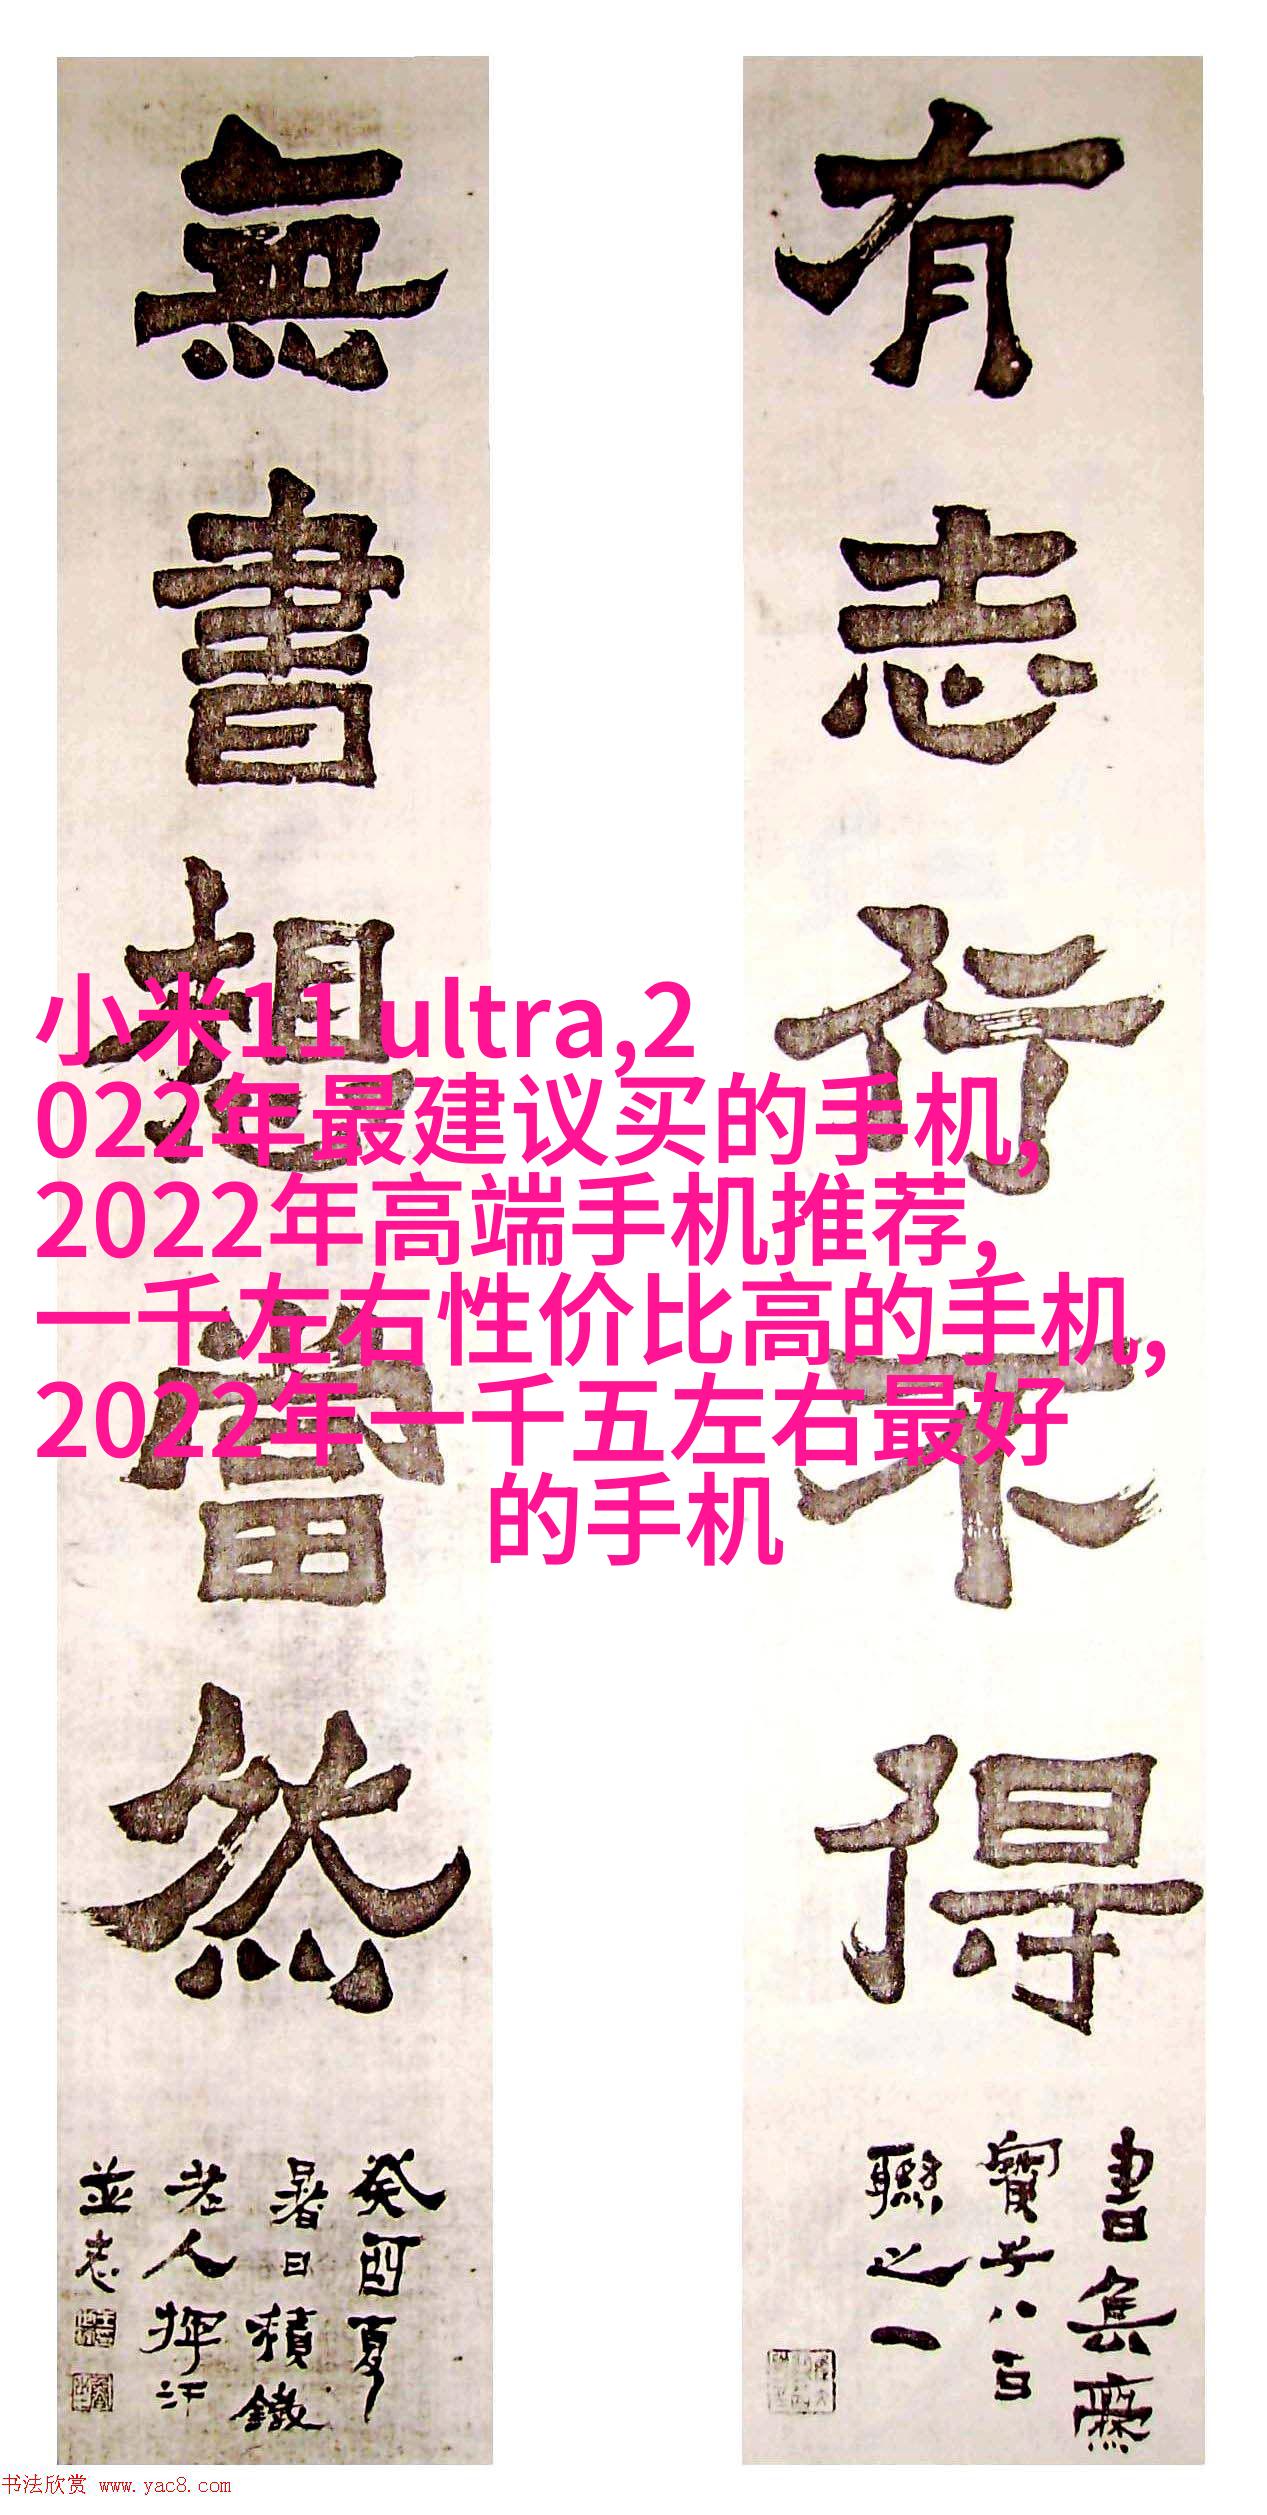 有志行不得
書集齋
寶子八百
聯之一
無書想當然
癸酉夏
暑日積鐵
老人揮汗
並志
小米11 ultra,2
022年最建议买的手机,
2022年高端手机推荐,
一千左右性价比高的手机,
2022年一千五左右最好
的手机
书法欣赏 www.yac8.com